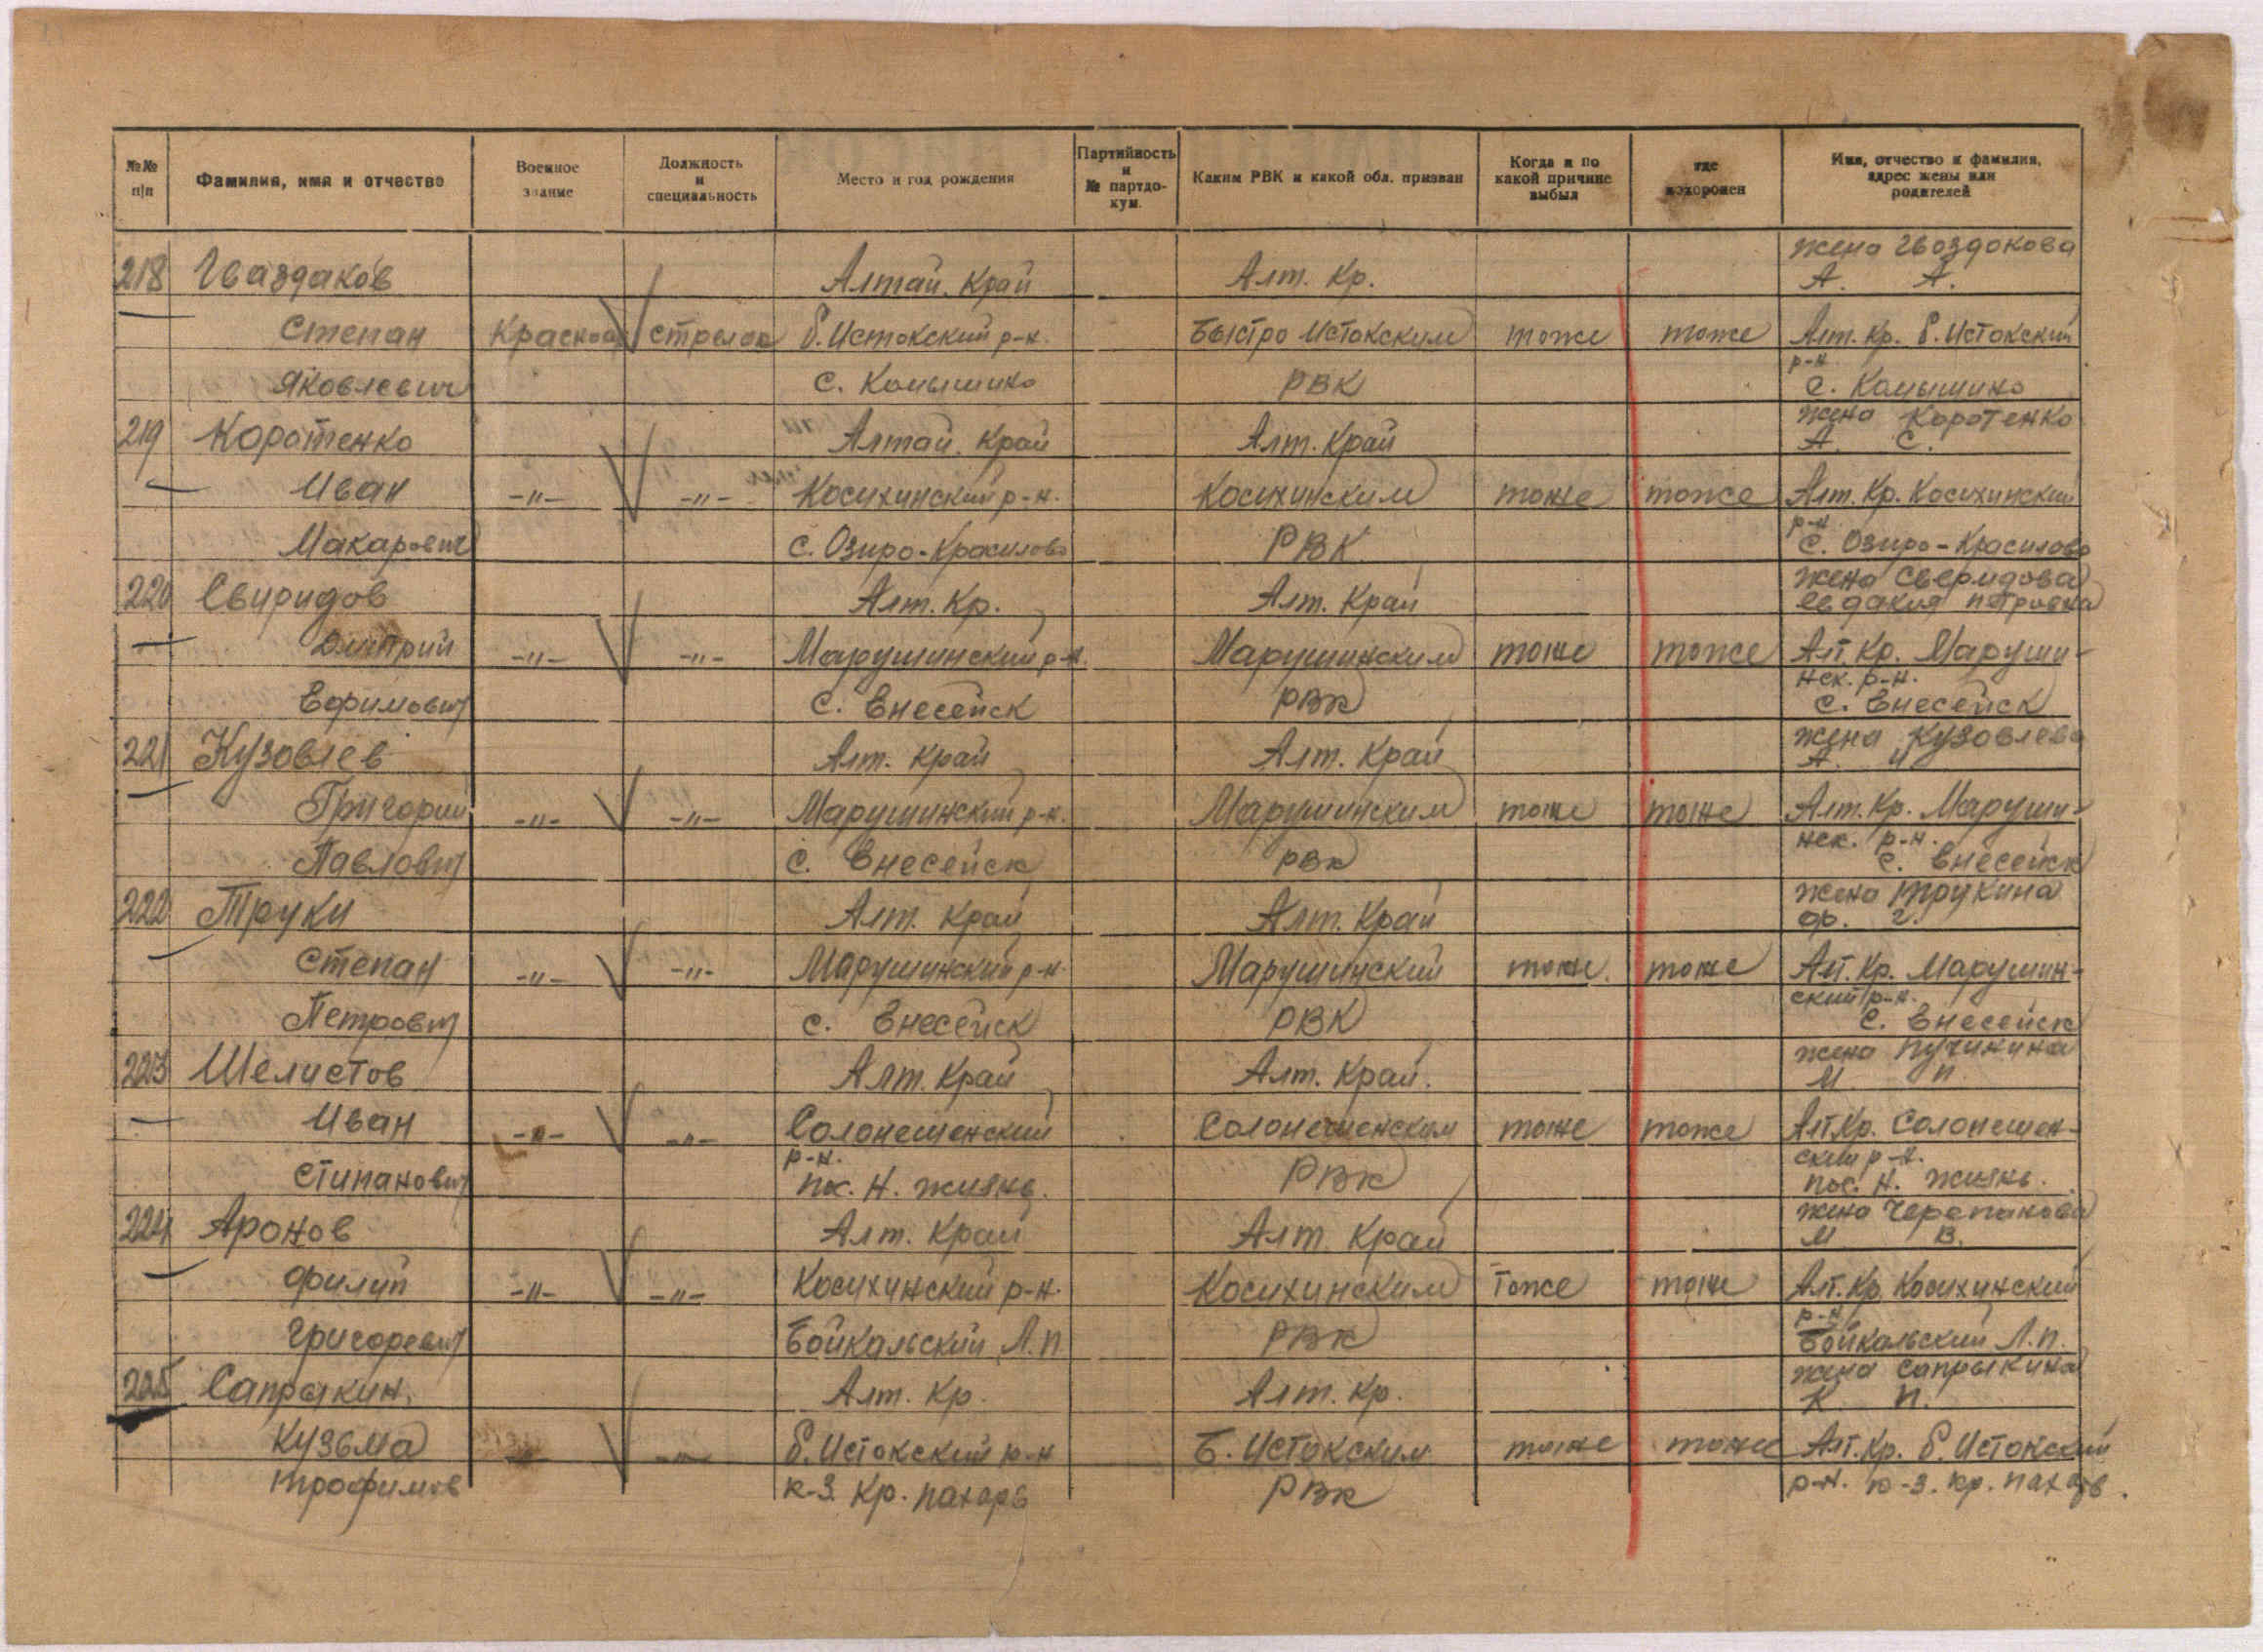 №№ п/п
Фамилия, имя и отчество
Военное звание
Должность и специальность
Место и год рождения
Партийность и № партдокум.
Каким РВК и какой обл. призван
Когда и по какой причине выбыл
где похоронен
Имя, отчество и фамилия, адрес жены или родителей
жена Гвоздокова
218 Гваздаков Алтай. Край Алт. Кр. А. А.
Степан Красноа стрелок Б. Истокский р-н. Быстро Истокским тоже тоже Алт. Кр. Б. Истокский
р-н.
Яковлевич с. Комышино РВК с. Комышино
жена Коротенко
219 Коротенко Алтай. Край Алт. Край А. С.
Иван -"- -"- Косихинский р-н. Косихинским тоже тоже Алт. Кр. Косихинский
р-н
Макарович с. Озиро-Красилово РВК с. Озиро-Красилово
жена Сверидова
220 Свиридов Алт. Кр. Алт. Край Евдакия Петровна
Дмитрий -"- -"- Марушинский р-н. Марушинским тоже тоже Алт. Кр. Маруши-
нск. р-н.
Ефимович с. Енесейск РВК с. Енесейск
жена Кузовлева
221 Кузовлев Алт. Край Алт. Край А. И
Григорий -"- -"- Марушинский р-н. Марушинским тоже тоже Алт. Кр. Маруши-
нск. р-н.
Павлович с. Енесейск РВК с. Енесейск
жена Трукина
222 Труки Алт. Край Алт. Край Ф. Г.
Степан -"- -"- Марушинский р-н. Марушинский тоже тоже Алт. Кр. Марушин-
ский р-н.
Петрович с. Енесейск РВК с. Енесейск
жена Пучинина
223 Шелистов Алт. Край Алт. Край. М П
Иван -"- -"- Солонешенский Солонешенским тоже тоже Алт. Кр. Солонешен-
р-н. ский р-н.
Стипанович пос. Н. жизнь. РВК пос. Н. жизнь.
жена Черепанова
224 Аронов Алт. Край Алт. Край М В.
Филип -"- -"- Косихинский р-н. Косихинским Тоже тоже Алт. Кр. Косихинский
р-н
Григоревич Бойкальский Л.п РВК Бойкальский Л.п.
жена Сапрыкина
225 Сапрыкин. Алт. Кр. Алт. Кр. К П.
Кузьма -"- -"- Б. Истокский р-н Б. Истокским тоже тоже Алт. Кр. Б. Истокский
Трофимов к-з. Кр. пахарь РВК р-н. к-з. Кр. пахарь.